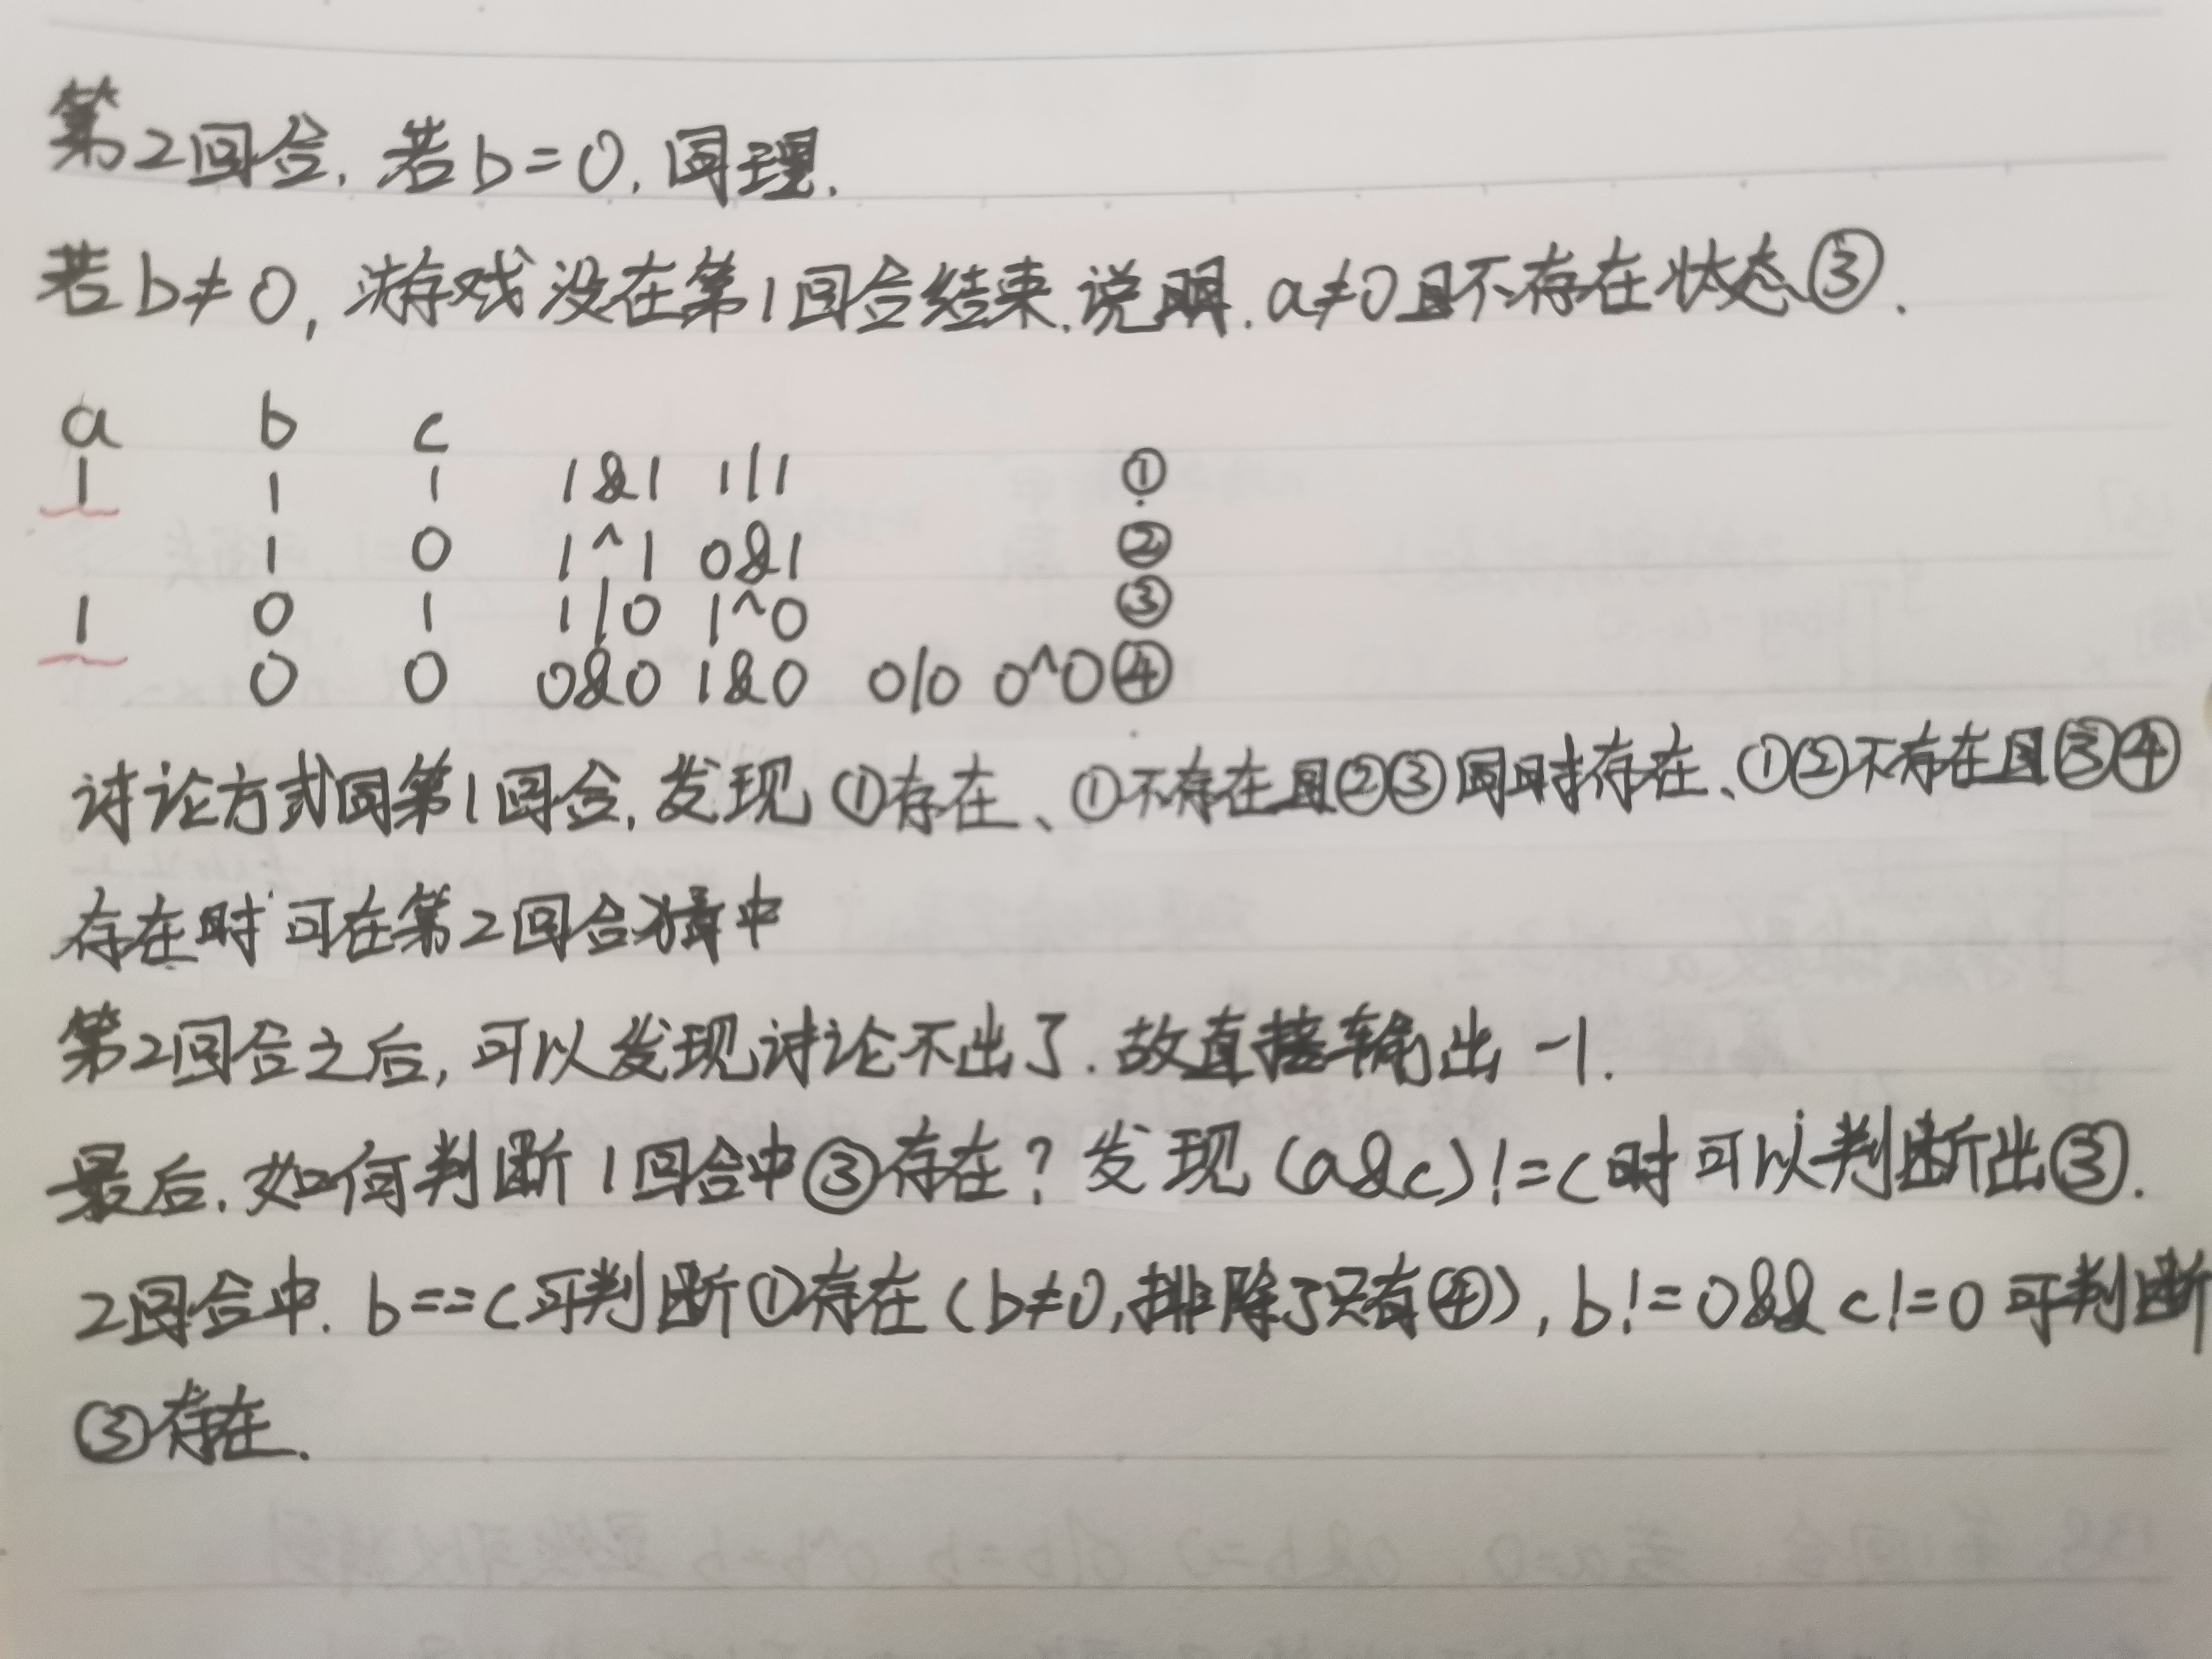 第2回合,若b=0,同理.
若b≠0,游戏没在第1回合结束,说明,a≠0且不存在状态③.
a b c
1 1 1 1&1 1|1 ①
1 0 1^1 0&1 ②
1 0 1 1|0 1^0 ③
0 0 0&0 1&0 0|0 0^0 ④
讨论方式同第1回合,发现①存在、①不存在且②③同时存在、①②不存在且③④
存在时可在第2回合猜中
第2回合之后,可以发现讨论不出了.故直接输出-1.
最后.如何判断1回合中③存在?发现(a&c)!=c时可以判断出③.
2回合中.b==c可判断①存在(b≠0,排除了只有④),b!=0&&c!=0可判断
③存在.